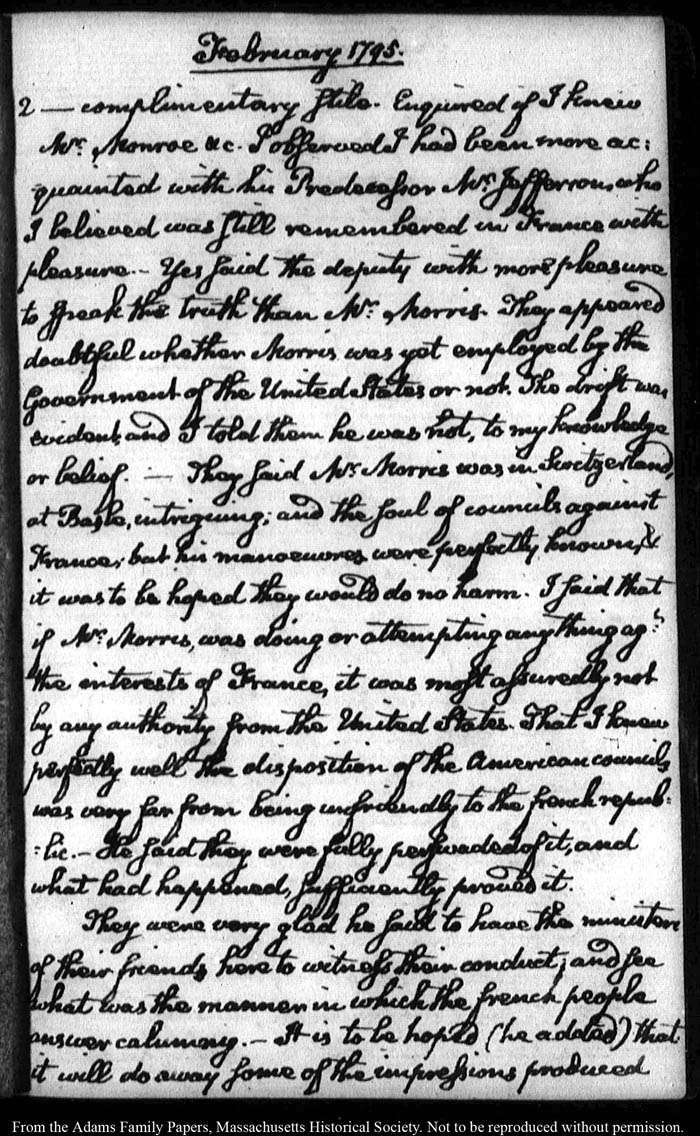 February 1795.
2 — complimentary stile. Enquired if I knew
Mr. Monroe &c. I observed I had been more ac:
quainted with his Predecessor Mr. Jefferson, who
I believed was still remembered in France with
pleasure.— Yes said the deputy with more pleasure
to speak the truth than Mr. Morris. They appeared
doubtful whether Morris was yet employed by the
Government of the United States or not. The drift was
evident, and I told them he was not, to my knowledge
or belief. — They said Mr. Morris was in Switzerland,
at Basle, intriguing; and the soul of councils against
France; but his manoeuvres were perfectly known, &
it was to be hoped they would do no harm. I said that
if Mr. Morris, was doing or attempting any thing agt.
the interests of France, it was most assuredly not
by any authority from the United States. That I knew
perfectly well the disposition of the American councils
was very far from being unfriendly to the french repub:
:lic.— He said they were fully perswaded of it, and
what had happened, sufficiently proved it.
They were very glad he said to have the ministers
of their friends here to witness their conduct; and see
what was the manner in which the french people
answer calumny.— It is to be hoped (he added) that
it will do away some of the impressions produced
From the Adams Family Papers, Massachusetts Historical Society. Not to be reproduced without permission.